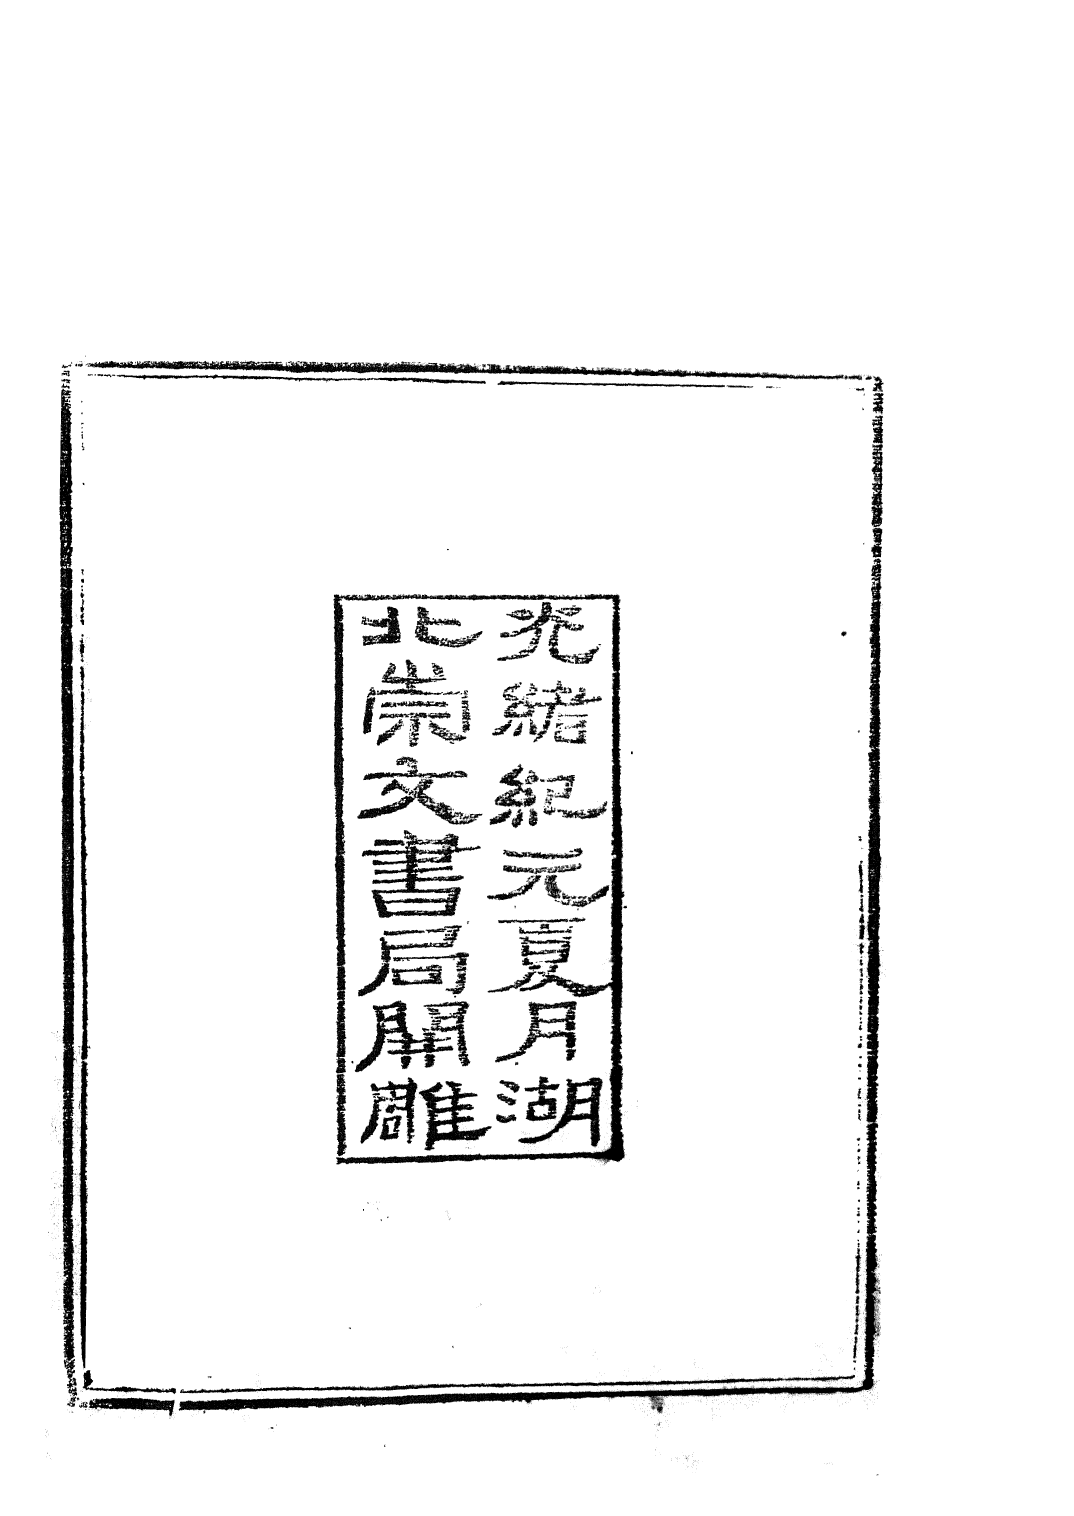 光緒紀元夏月湖
北崇文書局開雕